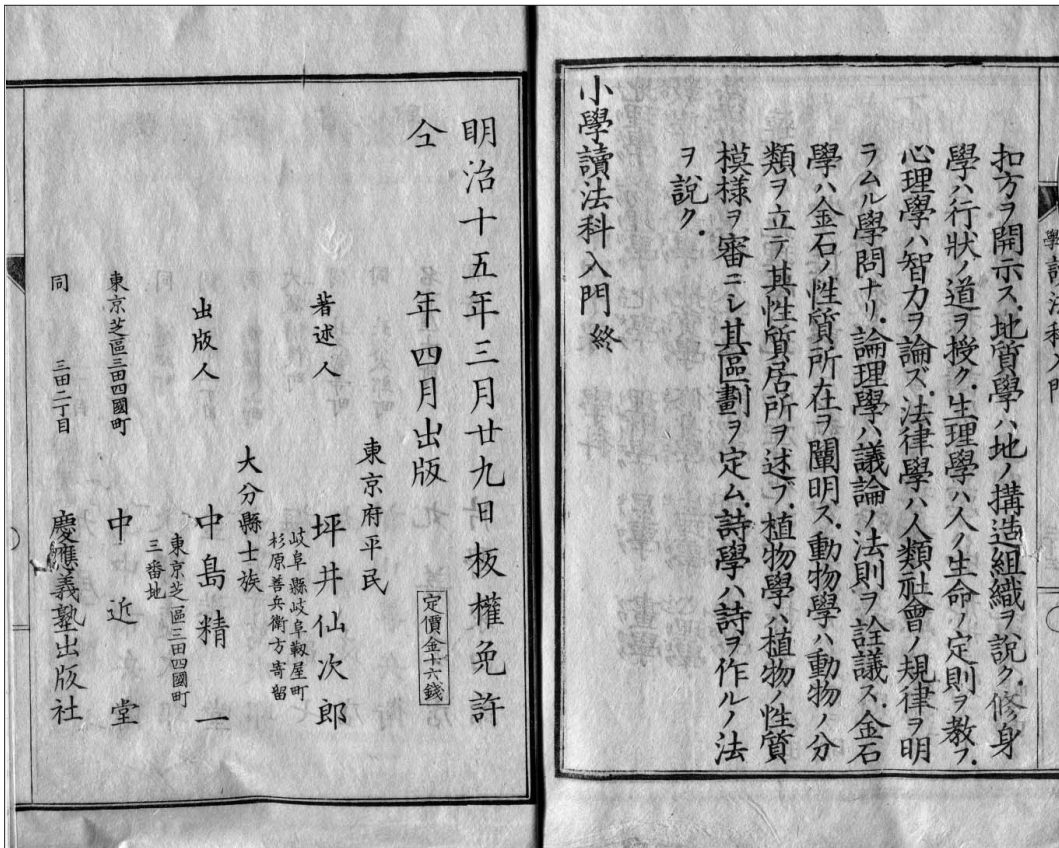 學讀法科入門
扣方ヲ開示ス.地質學ハ地ノ搆造組織ヲ說ク.修身
學ハ行狀ノ道ヲ授ク.生理學ハ人ノ生命ノ定則ヲ教フ.
心理學ハ智力ヲ論ズ.法律學ハ人類社會ノ規律ヲ明
ラムル學問ナリ.論理學ハ議論ノ法則ヲ詮議ス.金石
學ハ金石ノ性質所在ヲ闡明ス.動物學ハ動物ノ分
類ヲ立テ其性質居所ヲ述ブ.植物學ハ植物ノ性質
模様ヲ審ニシ其區劃ヲ定ム.詩學ハ詩ヲ作ルノ法
ヲ說ク.
小學讀法科入門終
明治十五年三月廿九日板權免許
仝年四月出版
定價金十六錢
東京府平民
著述人 坪井仙次郎
岐阜縣岐阜靱屋町
杉原善兵衛方寄留
大分縣士族
出版人 中島精一
東京芝區三田四國町
三番地
東京芝區三田四國町 中近堂
同 三田二丁目 慶應義塾出版社